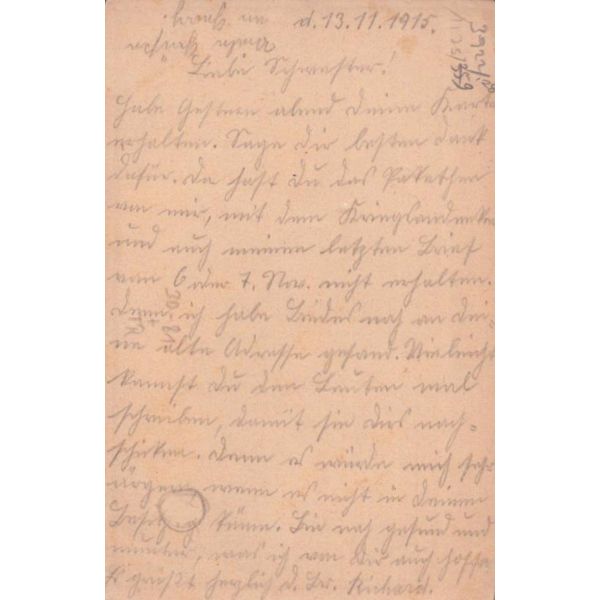 d. 13.11.1915.
Liebe Schwester!
Habe Gestern abend deine Karte
erhalten. Sage dir besten Dank
dafür. Da hast du das Paketchen
von mir, mit dem Kriegsandenken
und auch meinen letzten Brief
vom 6 oder 7. Nov. nicht erhalten.
Denn ich habe Beides noch an dei-
ne alte Adresse gesand. Vieleicht
kannst du den Leuten mal
schreiben, damit sie dies nach-
schicken. Denn es würde mich sehr
ärgern wenn es nicht in deinen
Besitz käme. Bin noch gesund und
munter, was ich von dir auch hoffe.
Es grüßt herzlich d. Br. Richard.